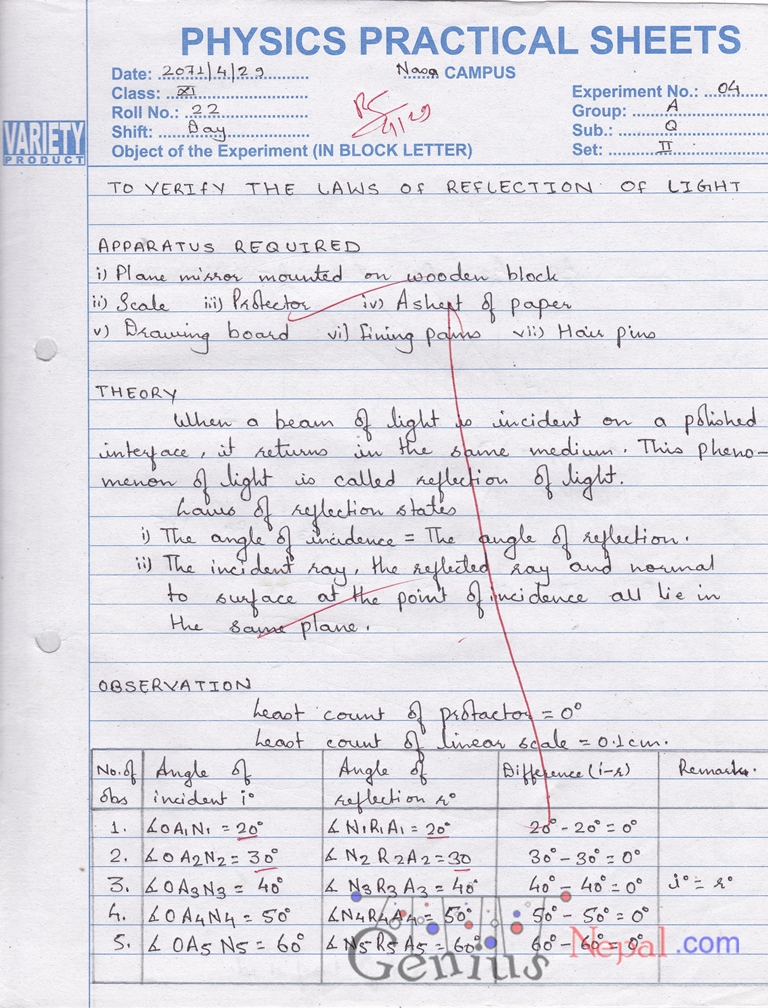 PHYSICS PRACTICAL SHEETS
Date: 2071/4/29
Naaa CAMPUS
Class: XI
Experiment No.: 04
Roll No.: 22
Group: A
Shift: Day
Sub.: Q
Object of the Experiment (IN BLOCK LETTER)
Set: II
VARIETY
PRODUCT
4/29
TO VERIFY THE LAWS OF REFLECTION OF LIGHT
APPARATUS REQUIRED
i) Plane mirror mounted on wooden block
ii) Scale iii) Protector iv) A sheet of paper
v) Drawing board vi) vii) Hair pins
THEORY
When a beam of light is incident on a polished
interface, it returns in the same medium. This pheno-
menon of light is called reflection of light.
Laws of reflection states
i) The angle of incidence = The angle of reflection.
ii) The incident ray, the reflected ray and normal
to surface at the point of incidence all lie in
the same plane.
OBSERVATION
Least count of protactor = 0°
Least count of linear scale = 0.1cm.
No. of obs Angle of incident i° Angle of reflection r° Difference (i-r) Remarks.
1. ∠OA1N1 = 20° ∠N1R1A1 = 20° 20° - 20° = 0°
2. ∠OA2N2 = 30° ∠N2R2A2 = 30 30° - 30° = 0°
3. ∠OA3N3 = 40° ∠N3R3A3 = 40° 40° - 40° = 0° i° = r°
4. ∠OA4N4 = 50° ∠N4R4A4 = 50° 50° - 50° = 0°
5. ∠OA5N5 = 60° ∠N5R5A5 = 60° 60° - 60° = 0°
Genius Nepal.com